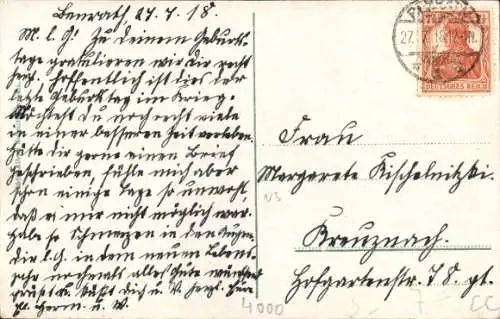 Benrath, 27.7.18.
M. l. G! Zu deinem Geburts-
tage gratulieren wir dir recht
herzl. Hoffentlich ist dies der
letzte Geburtstag im Krieg.
Möchtest du noch recht viele
in einer besseren Zeit verleben.
Hätte dir gerne einen Brief
geschrieben, fühle mich aber
schon einige Tage so unwohl,
daß es mir nicht möglich war.
Habe so Schmerzen in den Augen.
Dir l. G. in dem neuen Lebens-
jahr nochmals alles Gute wünschend
grüßt u. küßt dich u. V. herzl.
Herm. u. W.
27.7.18.12-1N.
DEUTSCHES REICH
Frau
Margarete Kischelnitzki.
Kreuznach.
Hofgartenstr. 78 gt.
4000